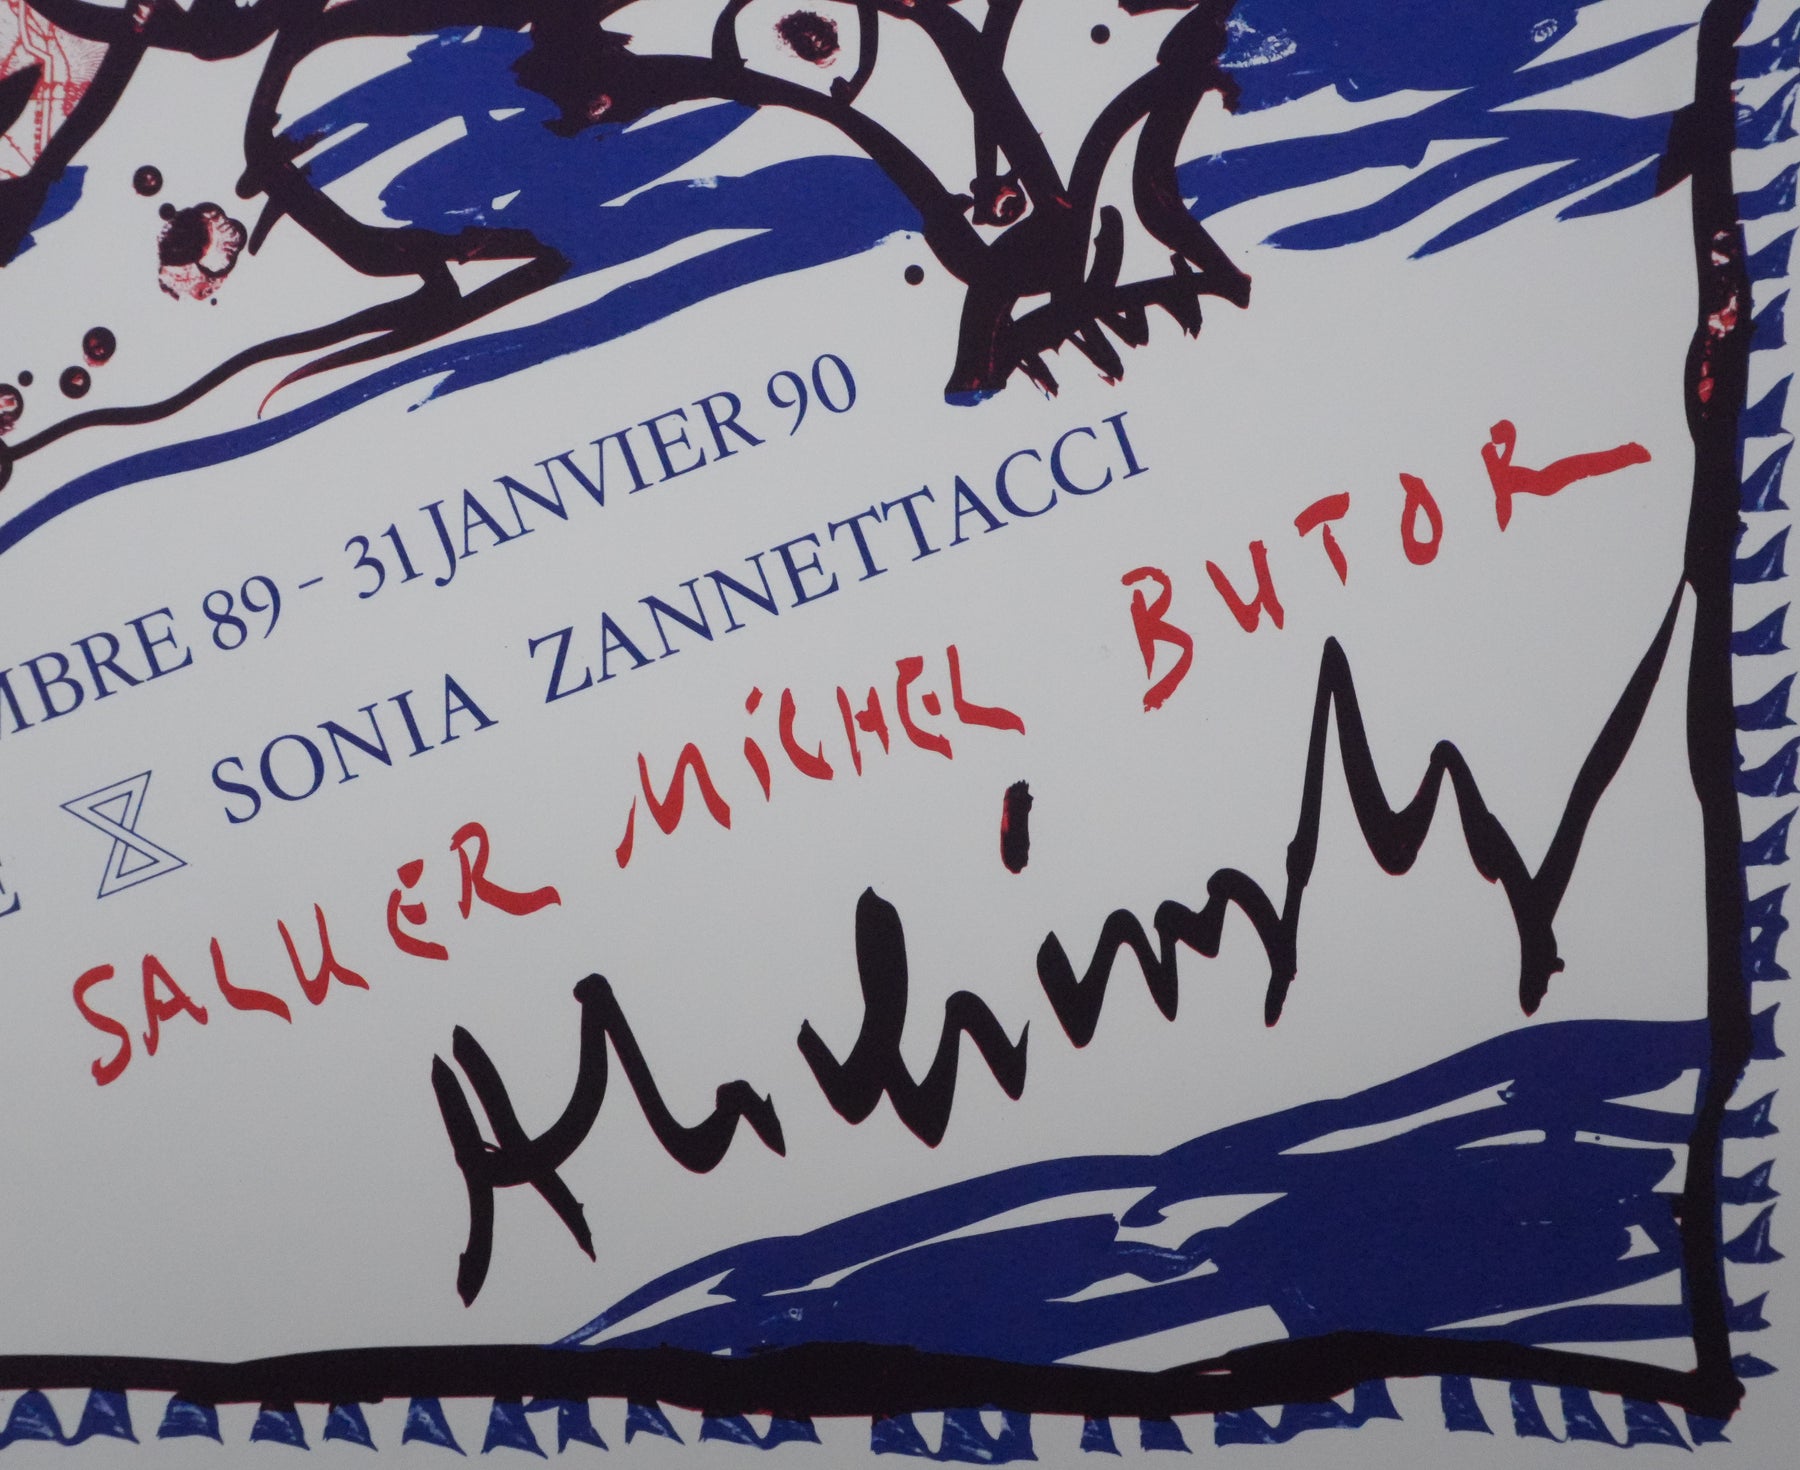 MBRE 89 - 31 JANVIER 90
E SONIA ZANNETTACCI
SALUER MICHEL BUTOR
Alechinsky